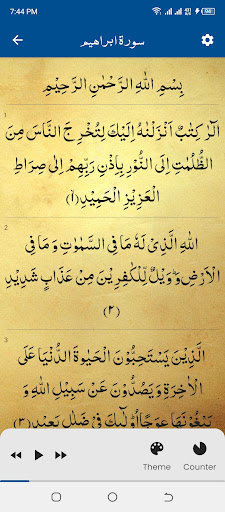 7:44 PM
سورۃ ابراهيم
بِسْمِ اللهِ الرَّحْمٰنِ الرَّحِيْمِ
1
الٓرٰ كِتٰبٌ اَنْزَلْنٰهُ اِلَيْكَ لِتُخْرِجَ النَّاسَ مِنَ
الظُّلُمٰتِ اِلَى النُّوْرِ بِاِذْنِ رَبِّهِمْ اِلٰى صِرَاطِ
الْعَزِيْزِ الْحَمِيْدِ(۱)
2
اللهِ الَّذِىْ لَهٗ مَا فِى السَّمٰوٰتِ وَمَا فِى
الْاَرْضِ وَوَيْلٌ لِّلْكٰفِرِيْنَ مِنْ عَذَابٍ شَدِيْدِ
(۲)
3
الَّذِيْنَ يَسْتَحِبُّوْنَ الْحَيٰوةَ الدُّنْيَا عَلَى
الْاٰخِرَةِ وَيَصُدُّوْنَ عَنْ سَبِيْلِ اللهِ وَ
يَبْغُوْنَهَا عِوَجًا اُولٰٓئِكَ فِىْ ضَلٰلٍ بَعِيْدٍ(۳)
Theme
Counter